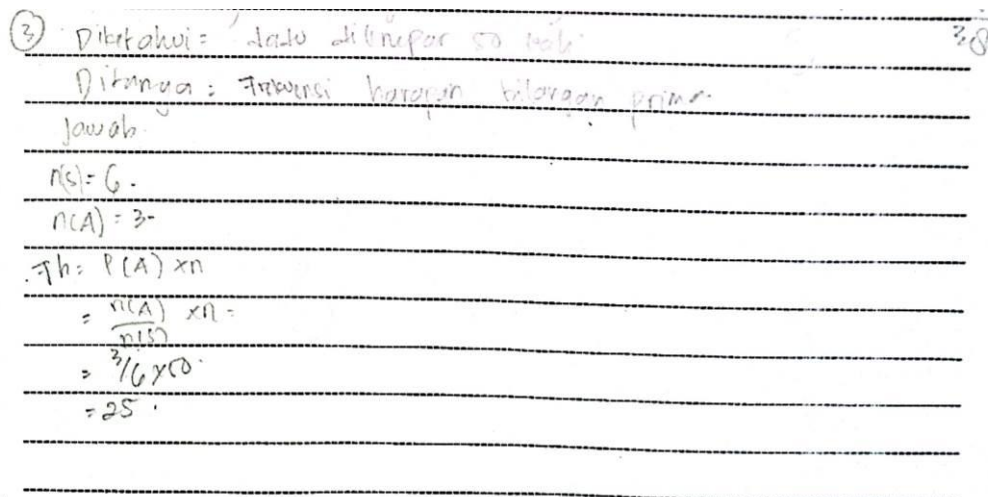 ③ Diketahui = dadu dilempar 50 kali
Ditanya : Frekuensi harapan bilangan prima.
Jawab.
n(s) = 6.
n(A) = 3-
Fh = P(A) xn
= n(A)/n(s) xn =
= 3/6 x50.
= 25.